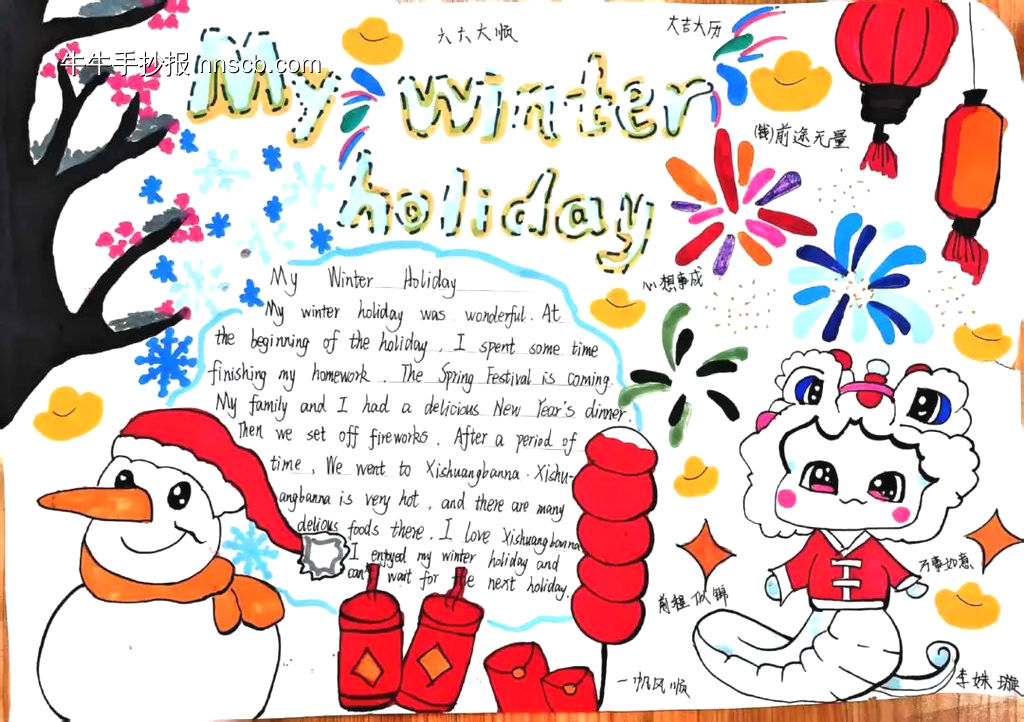 牛牛手抄报 nnscb.com
六六大顺
大吉大历
My winter
holiday
(钱)前途无量
心想事成
My Winter Holiday
My winter holiday was wonderful. At
the beginning of the holiday, I spent some time
finishing my homework. The Spring Festival is coming.
My family and I had a delicious New Year's dinner.
Then we set off fireworks. After a period of
time, We went to Xishuangbanna. Xishu-
angbanna is very hot, and there are many
delious foods there. I love Xishuangbanna
I enjoyed my winter holiday and
can't wait for the next holiday.
万事如意
前程似锦
一帆风顺
李姝璇